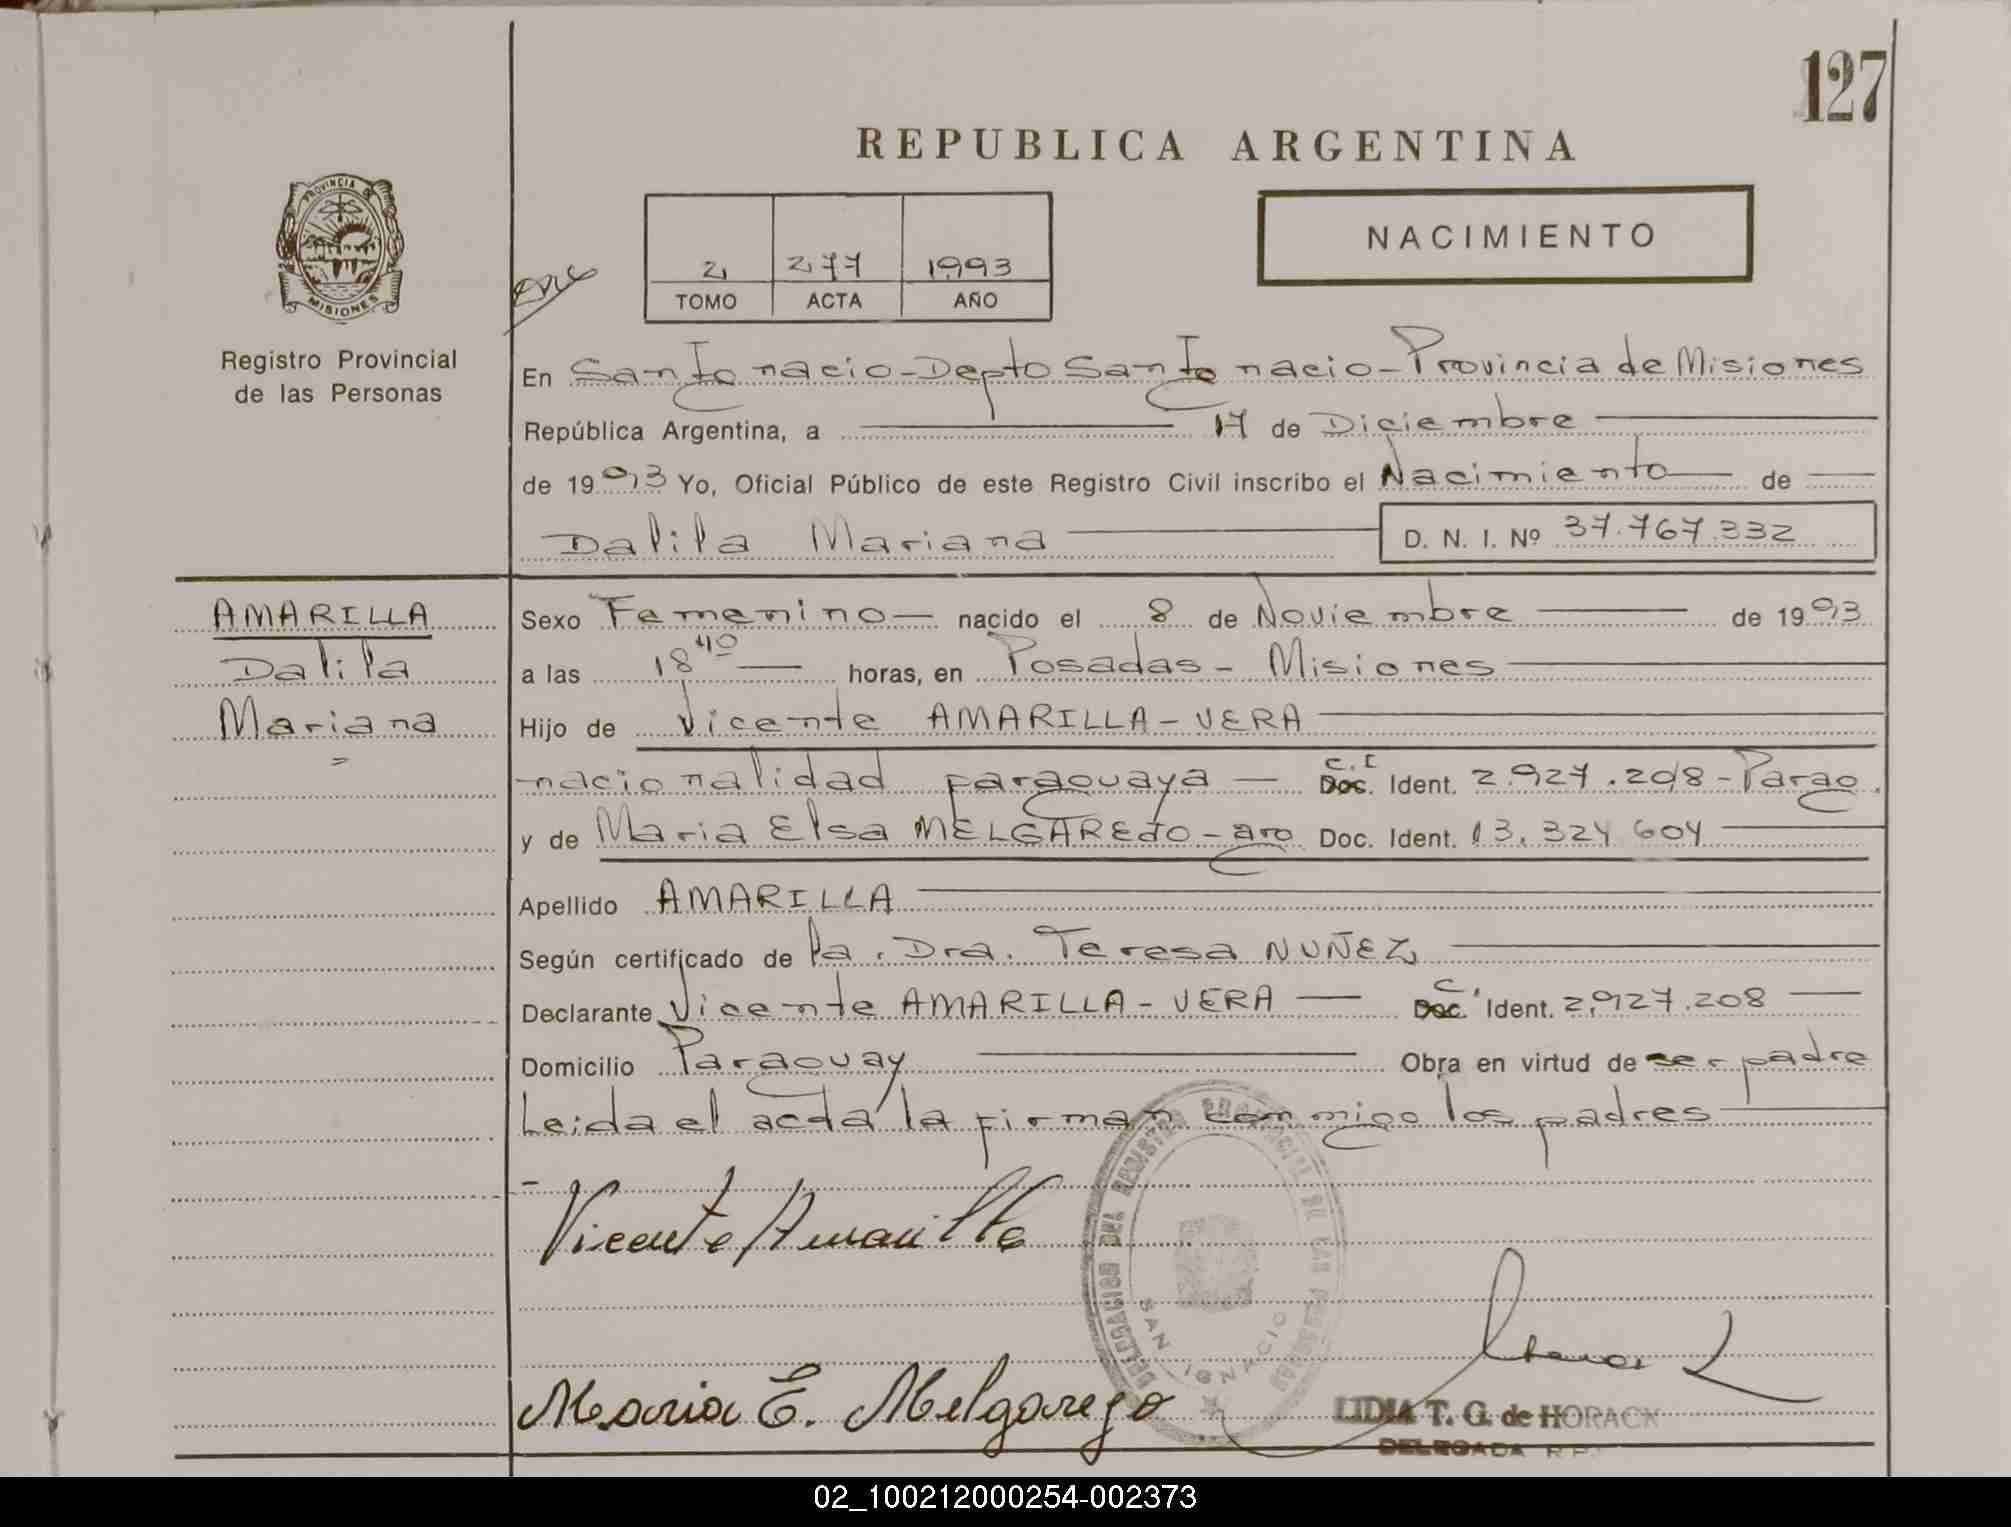 127
REPUBLICA ARGENTINA
PROVINCIA DE
MISIONES
Registro Provincial
de las Personas
2 277 1993
TOMO ACTA AÑO
NACIMIENTO
En San Ignacio - Depto San Ignacio - Provincia de Misiones
República Argentina, a 17 de Diciembre
de 1993 Yo, Oficial Público de este Registro Civil inscribo el Nacimiento de
Dalila Mariana D. N. I. Nº 37.767.332
AMARILLA
Dalila
Mariana
Sexo Femenino nacido el 8 de Noviembre de 1993
a las 18 40 horas, en Posadas - Misiones
Hijo de Vicente AMARILLA - VERA
nacionalidad paraguaya C.I Doc. Ident. 2.927.208 - Parag.
y de Maria Elsa MELGAREJO - arg Doc. Ident. 13.324.604
Apellido AMARILLA
Según certificado de la. Dra. Teresa NUÑEZ
Declarante Vicente AMARILLA - VERA C. Doc. Ident. 2.927.208
Domicilio Paraguay Obra en virtud de ser padre
Leida el acta la firman conmigo los padres
Vicente Amarilla
DELEGACION DEL REGISTRO PROVINCIAL DE LAS PERSONAS
SAN IGNACIO
Maria E. Melgarejo
LIDIA T. G. de HORACK
DELEGADA R.P.
02_100212000254-002373